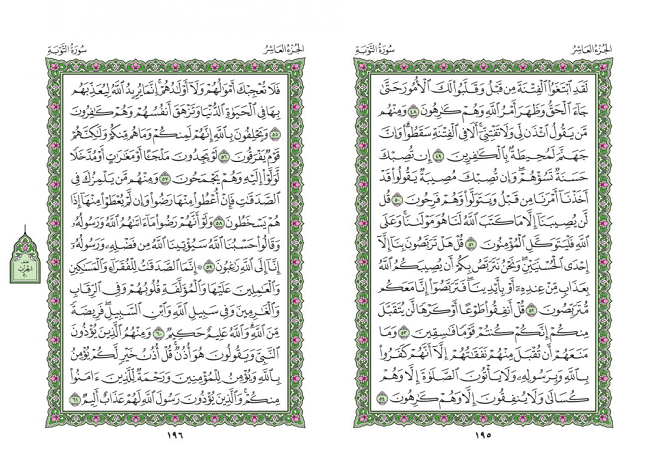 الجزء العاشر
سورة التوبة
لَقَدِ ٱبۡتَغَوُاْ ٱلۡفِتۡنَةَ مِن قَبۡلُ وَقَلَّبُواْ لَكَ ٱلۡأُمُورَ حَتَّىٰ
جَآءَ ٱلۡحَقُّ وَظَهَرَ أَمۡرُ ٱللَّهِ وَهُمۡ كَٰرِهُونَ ٤٨ وَمِنۡهُم
مَّن يَقُولُ ٱئۡذَن لِّي وَلَا تَفۡتِنِّيٓۚ أَلَا فِي ٱلۡفِتۡنَةِ سَقَطُواْۗ وَإِنَّ
جَهَنَّمَ لَمُحِيطَةُۢ بِٱلۡكَٰفِرِينَ ٤٩ إِن تُصِبۡكَ
حَسَنَةٞ تَسُؤۡهُمۡۖ وَإِن تُصِبۡكَ مُصِيبَةٞ يَقُولُواْ قَدۡ
أَخَذۡنَآ أَمۡرَنَا مِن قَبۡلُ وَيَتَوَلَّواْ وَّهُمۡ فَرِحُونَ ٥٠ قُل
لَّن يُصِيبَنَآ إِلَّا مَا كَتَبَ ٱللَّهُ لَنَا هُوَ مَوۡلَىٰنَاۚ وَعَلَى
ٱللَّهِ فَلۡيَتَوَكَّلِ ٱلۡمُؤۡمِنُونَ ٥١ قُلۡ هَلۡ تَرَبَّصُونَ بِنَآ إِلَّآ
إِحۡدَى ٱلۡحُسۡنَيَيۡنِۖ وَنَحۡنُ نَتَرَبَّصُ بِكُمۡ أَن يُصِيبَكُمُ ٱللَّهُ
بِعَذَابٖ مِّنۡ عِندِهِۦٓ أَوۡ بِأَيۡدِينَاۖ فَتَرَبَّصُوٓاْ إِنَّا مَعَكُم
مُّتَرَبِّصُونَ ٥٢ قُلۡ أَنفِقُواْ طَوۡعًا أَوۡ كَرۡهٗا لَّن يُتَقَبَّلَ
مِنكُمۡ إِنَّكُمۡ كُنتُمۡ قَوۡمٗا فَٰسِقِينَ ٥٣ وَمَا
مَنَعَهُمۡ أَن تُقۡبَلَ مِنۡهُمۡ نَفَقَٰتُهُمۡ إِلَّآ أَنَّهُمۡ كَفَرُواْ
بِٱللَّهِ وَبِرَسُولِهِۦ وَلَا يَأۡتُونَ ٱلصَّلَوٰةَ إِلَّا وَهُمۡ
كُسَالَىٰ وَلَا يُنفِقُونَ إِلَّا وَهُمۡ كَٰرِهُونَ ٥٤
١٩٥
الجزء العاشر
سورة التوبة
فَلَا تُعۡجِبۡكَ أَمۡوَٰلُهُمۡ وَلَآ أَوۡلَٰدُهُمۡۚ إِنَّمَا يُرِيدُ ٱللَّهُ لِيُعَذِّبَهُم
بِهَا فِي ٱلۡحَيَوٰةِ ٱلدُّنۡيَا وَتَزۡهَقَ أَنفُسُهُمۡ وَهُمۡ كَٰفِرُونَ
٥٥ وَيَحۡلِفُونَ بِٱللَّهِ إِنَّهُمۡ لَمِنكُمۡ وَمَا هُم مِّنكُمۡ وَلَٰكِنَّهُمۡ
قَوۡمٞ يَفۡرَقُونَ ٥٦ لَوۡ يَجِدُونَ مَلۡجَـًٔا أَوۡ مَغَٰرَٰتٍ أَوۡ مُدَّخَلٗا
لَّوَلَّوۡاْ إِلَيۡهِ وَهُمۡ يَجۡمَحُونَ ٥٧ وَمِنۡهُم مَّن يَلۡمِزُكَ فِي
ٱلصَّدَقَٰتِ فَإِنۡ أُعۡطُواْ مِنۡهَا رَضُواْ وَإِن لَّمۡ يُعۡطَوۡاْ مِنۡهَآ إِذَا
هُمۡ يَسۡخَطُونَ ٥٨ وَلَوۡ أَنَّهُمۡ رَضُواْ مَآ ءَاتَىٰهُمُ ٱللَّهُ وَرَسُولُهُۥ
وَقَالُواْ حَسۡبُنَا ٱللَّهُ سَيُؤۡتِينَا ٱللَّهُ مِن فَضۡلِهِۦ وَرَسُولُهُۥٓ
إِنَّآ إِلَى ٱللَّهِ رَٰغِبُونَ ٥٩ ۞ إِنَّمَا ٱلصَّدَقَٰتُ لِلۡفُقَرَآءِ وَٱلۡمَسَٰكِينِ
وَٱلۡعَٰمِلِينَ عَلَيۡهَا وَٱلۡمُؤَلَّفَةِ قُلُوبُهُمۡ وَفِي ٱلرِّقَابِ
وَٱلۡغَٰرِمِينَ وَفِي سَبِيلِ ٱللَّهِ وَٱبۡنِ ٱلسَّبِيلِۖ فَرِيضَةٗ
مِّنَ ٱللَّهِۗ وَٱللَّهُ عَلِيمٌ حَكِيمٞ ٦٠ وَمِنۡهُمُ ٱلَّذِينَ يُؤۡذُونَ
ٱلنَّبِيَّ وَيَقُولُونَ هُوَ أُذُنٞۚ قُلۡ أُذُنُ خَيۡرٖ لَّكُمۡ يُؤۡمِنُ
بِٱللَّهِ وَيُؤۡمِنُ لِلۡمُؤۡمِنِينَ وَرَحۡمَةٞ لِّلَّذِينَ ءَامَنُواْ
مِنكُمۡۚ وَٱلَّذِينَ يُؤۡذُونَ رَسُولَ ٱللَّهِ لَهُمۡ عَذَابٌ أَلِيمٞ ٦١
١٩٦
الحزب